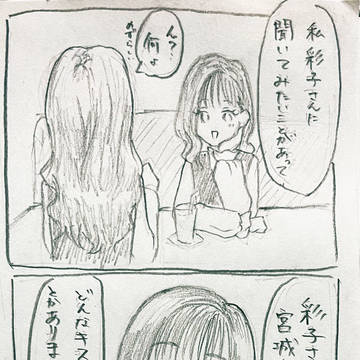 私 彩子さんに
聞いてみたいことがあって、
ん？
何よ
めずらしい
彩子さ
宮城
どんなキス
とがありま